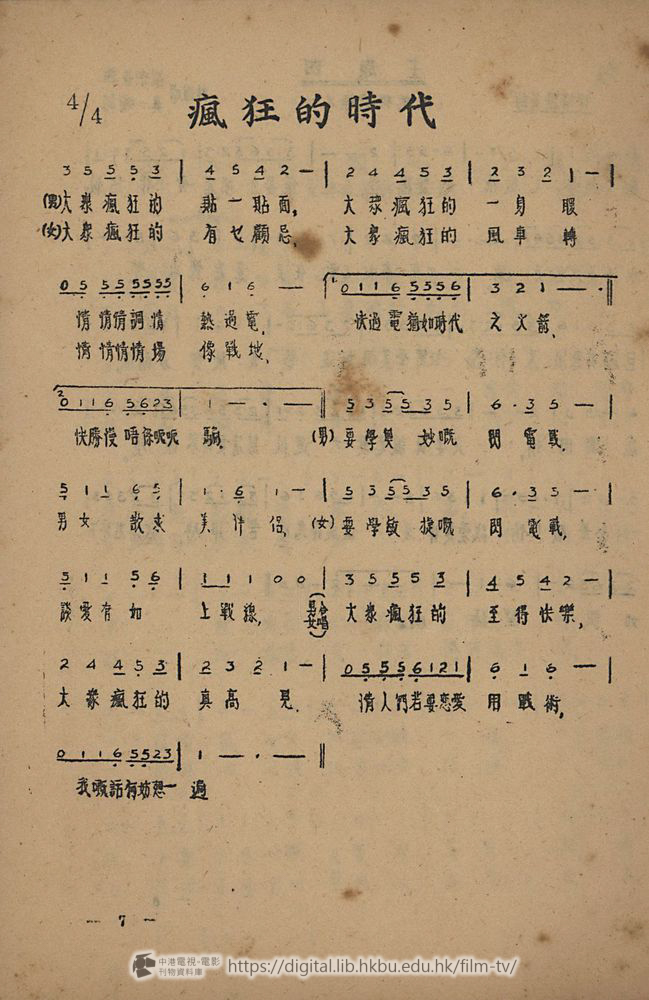 4/4 瘋狂的時代
3 5 5 5 3 | 4 5 4 2 — | 2 4 4 5 3 | 2 3 2 1 — |
(男)大衆瘋狂的 貼一貼面, 大衆瘋狂的 一身 服
(女)大衆瘋狂的 有乜顧忌, 大衆瘋狂的 風車 轉
0 5 5 5 5 5 5 5 5 | 6 1 6 — | 1. 0 1 1 6 5 5 5 6 | 3 2 1 — · ‖
情 情情調情 熱過電, 快過電猶如時代 之火箭.
情 情情情場 像戰地,
2. 0 1 1 6 5 6 2 3 | 1 — · — ‖ 5 3 5 5 3 5 | 6 · 3 5 — |
快勝慢唔係呃呃 騙. (男)要學奧 妙嘅 閃 電戰,
5 1 1 6 5 | 1 · 6 1 — | 5 3 5 5 3 5 | 6 · 3 5 — |
男女 歡 美 伴 侶, (女)要學敏 捷嘅 閃 電戰,
5 1 1 5 6 | 1 1 1 0 0 | 3 5 5 5 3 | 4 5 4 2 — |
談愛有如 上戰線, (男女合唱) 大衆瘋狂的 至得快樂,
2 4 4 5 3 | 2 3 2 1 — | 0 5 5 5 6 1 2 1 | 6 1 6 — |
大衆瘋狂的 真高 見. 情人們若要戀愛 用戰術,
0 1 1 6 5 5 2 3 | 1 — · — ‖
我嘅話有妨想一 遍
— 7 —
中港電視·電影
刊物資料庫
https://digital.lib.hkbu.edu.hk/film-tv/